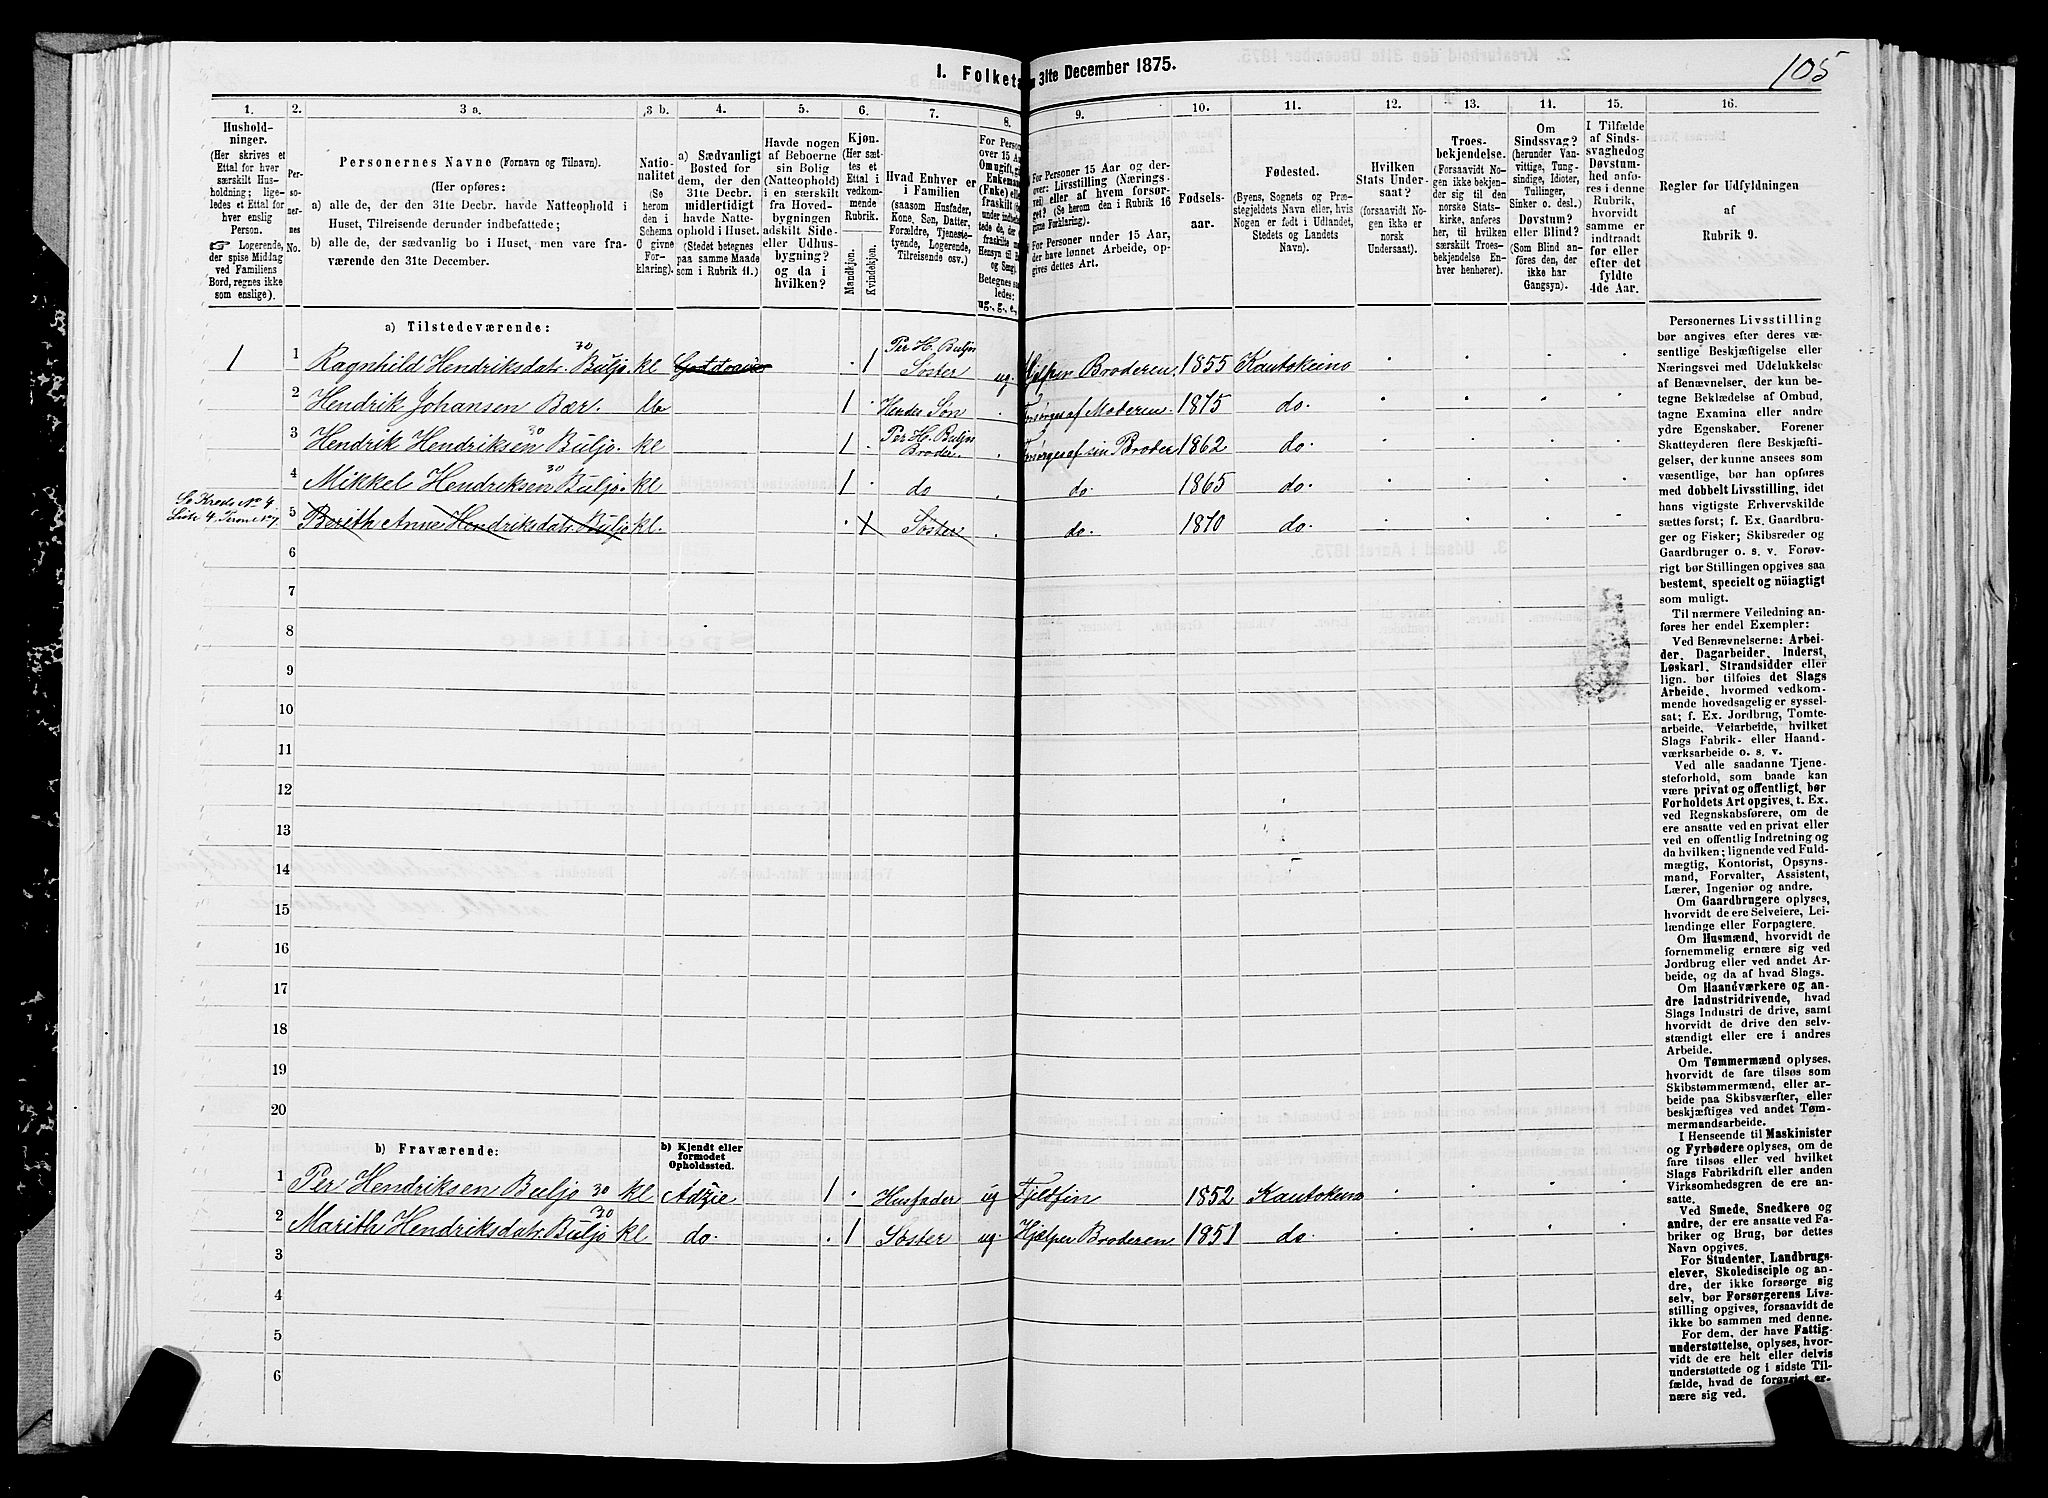 105
1. Folketæ
n 31te December 1875.
1.
Hushold-
ninger.
(Her skrives et
Ettal for hver
særskilt Hus-
holdning; lige-
ledes et Ettal for
hver enslig
Person.
Logerende,
der spise Middag
ved Familiens
Bord, regnes ikke
som enslige).
2.
Per-
so-
ner-
nes
No.
3 a.
Personernes Navne (Fornavn og Tilnavn).
(Her opføres:
a) alle de, der den 31te Decbr. havde Natteophold i
Huset, Tilreisende derunder indbefattede;
b) alle de, der sædvanlig bo i Huset, men vare fra-
værende den 31te December.
3 b.
Natio-
nalitet
(Se
herom
den i
Schema
C givne
For-
klaring).
4.
a) Sædvanligt
Bosted for
dem, der den
31te Decbr.
midlertidigt
havde Natte-
ophold i Huset.
(Stedet betegnes
paa samme Maade
som i Rubrik 11.)
5.
Havde nogen
af Beboerne
sin Bolig
(Natteophold)
i en særskilt
fra Hoved-
bygningen
adskilt Side-
eller Udhus-
bygning?
og da i
hvilken?
6.
Kjøn.
(Her sæt-
tes et
Ettal i
vedkom-
mende
Rubrik.
Mandkjøn.
Kvindekjøn.
7.
Hvad Enhver er
i Familien
(saasom Husfader,
Kone, Søn, Datter,
Forældre, Tjeneste-
tyende, Logerende,
Tilreisende osv.)
8.
For Person
over 15 Aa
Om ugift, g
Enkeman
(Enke) elle
fraskilt
ug., g., e.,
9.
For Personer 15 Aar og der-
over: Livsstilling (Nærings-
vei) eller af hvem forsør-
get? (Se herom den i Rubrik 16
givne Forklaring).
For Personer under 15 Aar,
der have lønnet Arbeide, op-
gives dettes Art.
10.
Fødsels-
aar.
11.
Fødested.
(Byens, Sognets og Præ-
stegjeldets Navn eller, hvis
Nogen er født i Udlandet,
Stedets og Landets
Navn).
12.
Hvilken
Stats Under-
saat?
(forsaavidt No-
gen ikke er
norsk
Undersaat).
13.
Troes-
bekjendelse.
(Forsaavidt No-
gen ikke bekjen-
der sig til den
norske Stats-
kirke, anføres
her, til hvilken
særskilt Troes-
bekjendelse En-
hver henhører).
14.
Om
Sindssvag?
(herunder Van-
vittige, Tung-
sindige, Idioter,
Tullinger,
Sinker o. desl.)
Døvstum?
eller Blind?
(Som Blind an-
føres den, der
ikke har
Gangsyn).
15.
I Tilfælde
af Sinds-
svaghed og
Døvstum-
hed anfø-
res i denne
Rubrik,
hvorvidt
samme er
indtraadt
før eller
efter det
fyldte
4de Aar.
16.
Regler for Udfyldningen
af
Rubrik 9.
a) Tilstedeværende:
1 1 Ragnhild Hendriksdatr. Buljo 30 kl Godtvain · 1 Per H. Buljo Søster ug. Hjelper Broderen. 1855 Kautokeino
2 Hendrik Johansen Bær. lb 1 · Hendes Søn . Forsørges af Moderen. 1875 do.
3 Hendrik Hendriksen Buljo. 30 kl 1 · Per H. Buljo Broder. . Forsørges af sin Broder 1862 do.
4 Mikkel Hendriksen Buljo. 30 kl 1 · do . do. 1865 do.
Se Kreds No 4
Liste 4.
5 Berith Anne Hendriksdatr. Buljo kl. · 1 Søster . do. 1870 do.
6
7
8
9
10
11
12
13
14
15
16
17
18
19
20
b) Fraværende:
b) Kjendt eller
formodet
Opholdssted.
1 Per Hendriksen Buljo 30 kl Adzie 1 · Husfader ug Fjeldfin 1852 Kautokeino
2 Marith Hendriksdatr. Buljo 30 kl do. · 1 Søster ug. Hjælper Broderen 1851 do.
3
4
5
6
Personernes Livsstilling
bør angives efter deres væ-
sentlige Beskjæftigelse eller
Næringsvei med Udelukkelse
af Benævnelser, der kun be-
tegne Beklædelse af Ombud,
tagne Examina eller andre
ydre Egenskaber. Forener
Skatteyderen flere Beskjæfti-
gelser, der kunne ansees som
væsentlige, bør han opføres
med dobbelt Livsstilling, idet
hans vigtigste Erhvervskilde
sættes først; f. Ex. Gaardbru-
ger og Fisker; Skibsreder og
Gaardbruger o. s. v. Forøv-
rigt bør Stillingen opgives saa
bestemt, specielt og nöiagtigt
som muligt.
Til nærmere Veiledning an-
føres her endel Exempler:
Ved Benævnelserne: Arbei-
der, Dagarbeider, Inderst,
Løskarl, Strandsidder eller
lign. bør tilføies det Slags
Arbeide, hvormed vedkom-
mende hovedsagelig er syssel-
sat; f. Ex. Jordbrug, Tomte-
arbeide, Veiarbeide, hvilket
Slags Fabrik- eller Haand-
værksarbeide o. s. v.
Ved alle saadanne Tjene-
steforhold, som baade kan
være privat og offentligt, bør
Forholdets Art opgives, t. Ex.
ved Regnskabsførere, om de
ere ansatte ved en privat eller
ved en offentlig Indretning og
da hvilken; lignende ved Fuld-
mægtig, Kontorist, Opsyns-
mand, Forvalter, Assistent,
Lærer, Ingeniør og andre.
Om Gaardbrugere oplyses,
hvorvidt de ere Selveiere, Lei-
lændinge eller Forpagtere.
Om Husmænd, hvorvidt de
fornemmelig ernære sig ved
Jordbrug eller ved andet Ar-
beide, og da af hvad Slags.
Om Haandværkere og an-
dre Industridrivende, hvad
Slags Industri de drive, samt
hvorvidt de drive den selv-
stændigt eller ere i andres
Arbeide.
Om Tømmermænd oplyses,
hvorvidt de fare tilsøs som
Skibstømmermænd, eller ar-
beide paa Skibsværfter, eller
beskjæftiges ved andet Tøm-
mermandsarbeide.
I Henseende til Maskinister
og Fyrbødere oplyses, om de
fare tilsøs eller ved hvilket
Slags Fabrikdrift eller anden
Virksomhedsgren de ere an-
satte.
Ved Smede, Snedkere og
andre, der ere ansatte ved Fa-
briker og Brug, bør dettes
Navn opgives.
For Studenter, Landbrugs-
elever, Skoledisciple og an-
dre, der ikke forsørge sig
selv, bør Forsørgerens Livs-
stilling opgives, forsaavidt de
ikke bo sammen med denne.
For dem, der have Fattig-
understøttelse, oplyses, hvor-
vidt de ere helt eller delvis
understøttede og i sidste Til-
fælde, hvad de forøvrigt er-
nære sig ved.